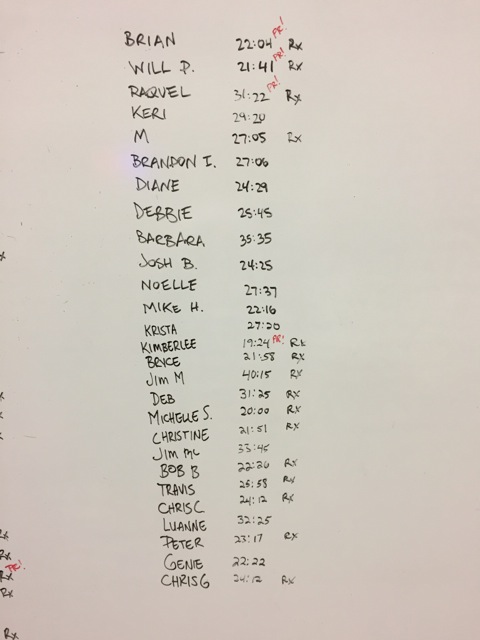 BRIAN 22:04 PR! Rx
WILL P. 21:41 PR! Rx
RAQUEL 31:22 PR! Rx
KERI 29:20
M 27:05 Rx
BRANDON I. 27:06
DIANE 24:29
DEBBIE 25:45
BARBARA 35:35
JOSH B. 24:25
NOELLE 27:37
MIKE H. 22:16
KRISTA 27:20
KIMBERLEE 19:24 PR! Rx
BRYCE 21:58 Rx
Jim M 40:15 Rx
DEB 31:25 Rx
MICHELLE S. 20:00 Rx
CHRISTINE 21:51 Rx
Jim Mc 33:45
BOB B 22:26 Rx
TRAVIS 25:58 Rx
CHRIS C 24:12 Rx
LUANNE 32:25
PETER 23:17 Rx
GENIE 22:22
CHRIS G 24:12 Rx
Rx
Rx
PR!
Rx
Rx
Rx